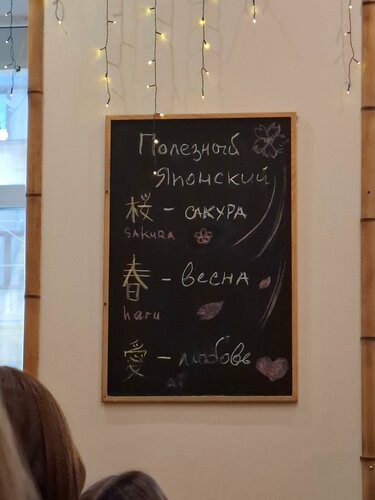 Полезный
Японский
桜 - САКУРА
SAKURA
春 - весна
haru
愛 - любовь
Ai